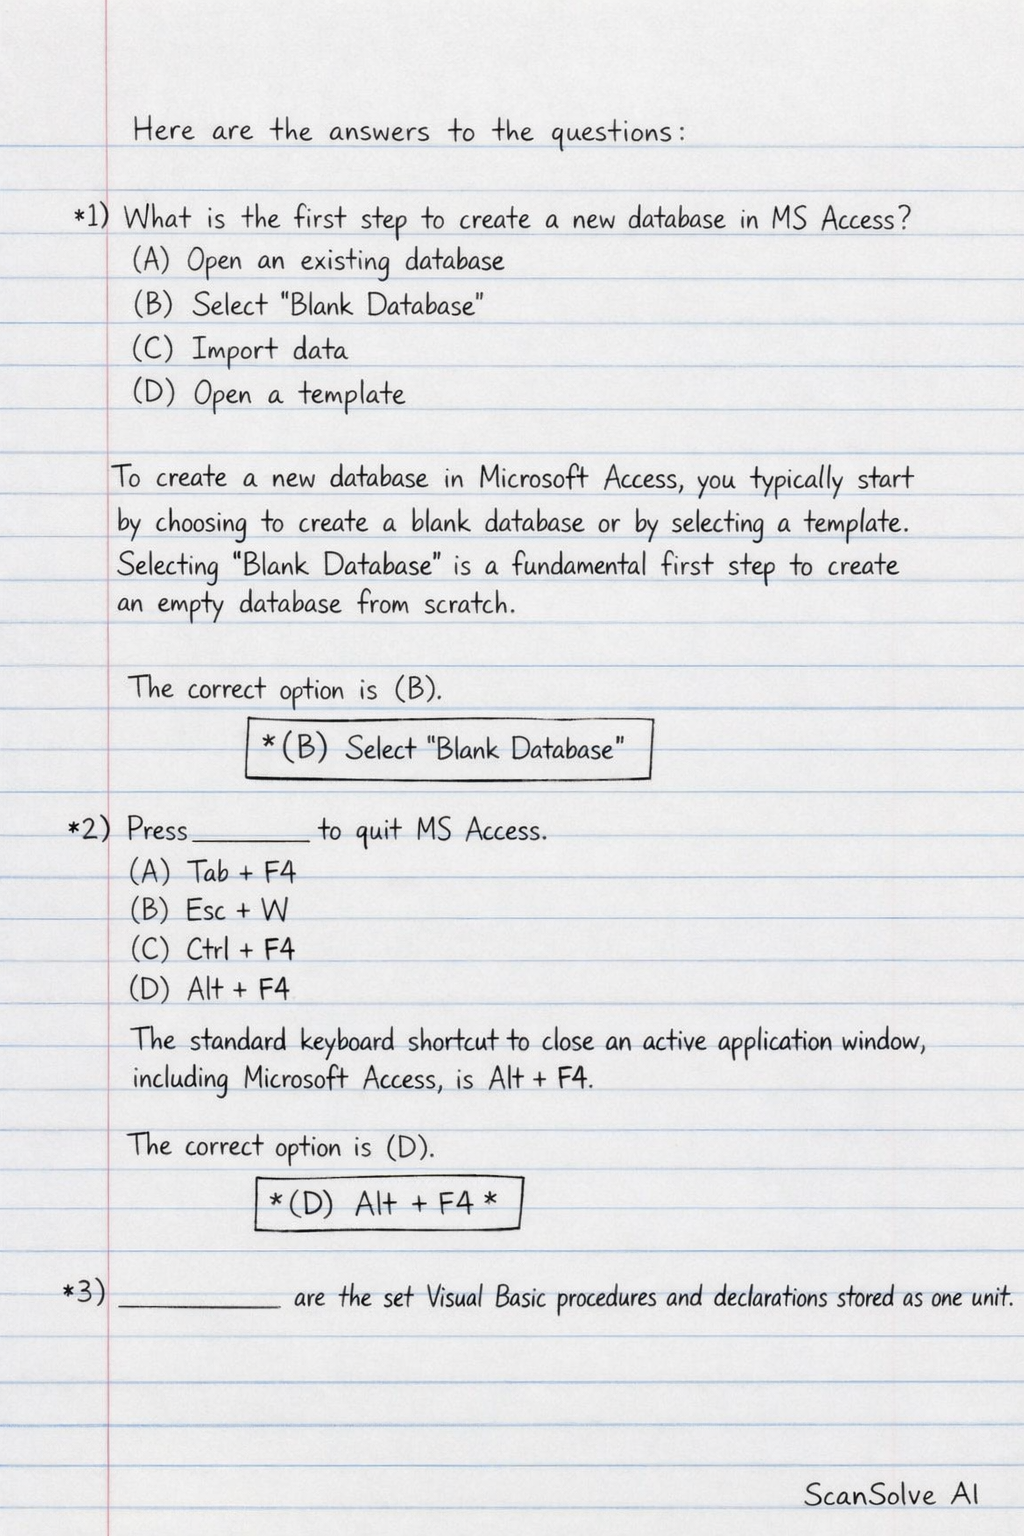 Here are the answers to the questions:
*1) What is the first step to create a new database in MS Access?
(A) Open an existing database
(B) Select "Blank Database"
(C) Import data
(D) Open a template
To create a new database in Microsoft Access, you typically start
by choosing to create a blank database or by selecting a template.
Selecting "Blank Database" is a fundamental first step to create
an empty database from scratch.
The correct option is (B).
*(B) Select "Blank Database"
*2) Press ________ to quit MS Access.
(A) Tab + F4
(B) Esc + W
(C) Ctrl + F4
(D) Alt + F4
The standard keyboard shortcut to close an active application window,
including Microsoft Access, is Alt + F4.
The correct option is (D).
*(D) Alt + F4 *
*3) ____________ are the set Visual Basic procedures and declarations stored as one unit.
ScanSolve AI